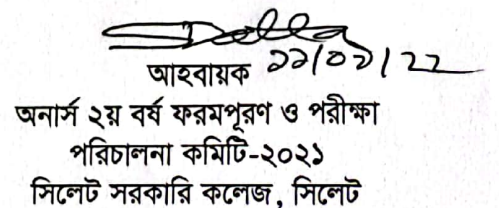 ১১/০১/২২
আহবায়ক
অনার্স ২য় বর্ষ ফরমপূরণ ও পরীক্ষা
পরিচালনা কমিটি-২০২১
সিলেট সরকারি কলেজ, সিলেট